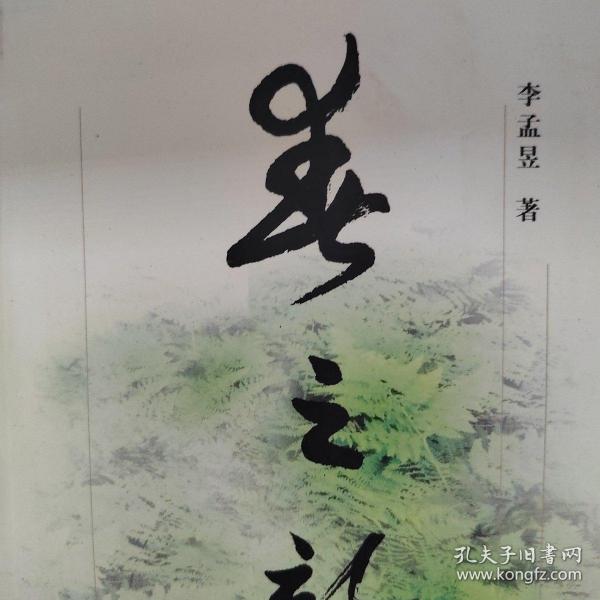 李孟昱 著
之
孔夫子旧书网
www.kongfz.com